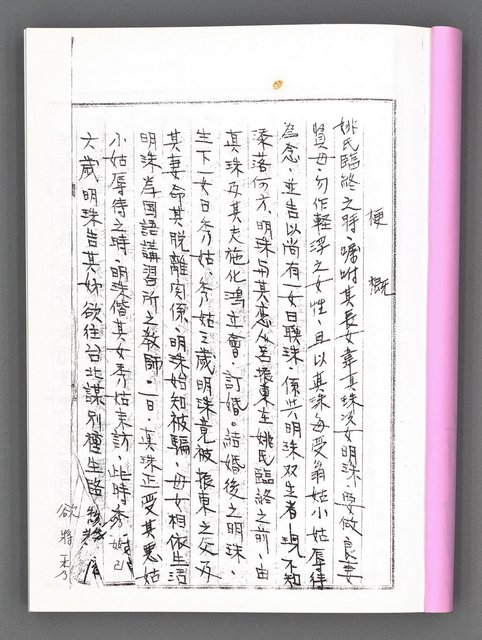 梗概
姚氏臨終之時、囑咐其長女事真珠次女明珠、要做良妻
賢母、勿作輕浮之女性、且以真珠每受翁姑小姑辱待
為念、並告以尚有一女曰聯珠、係共明珠双生者、現不知
流落何方、明珠與其恋人呂振東在姚氏臨終之前、由
真珠及其夫施化鴻立會、訂婚。結婚後之明珠、
生下一女曰秀姑、秀姑三歲明珠竟被振東之父及
其妻命其脫離関係、明珠始知被騙、母女相依生活
明珠為國語講習所之教師。一日、真珠正受其悪姑
小姑辱待之時、明珠偕其女秀姑来訪、此時秀姑已
六歲明珠告其姊欲往台北謀別種生路
欲將秀